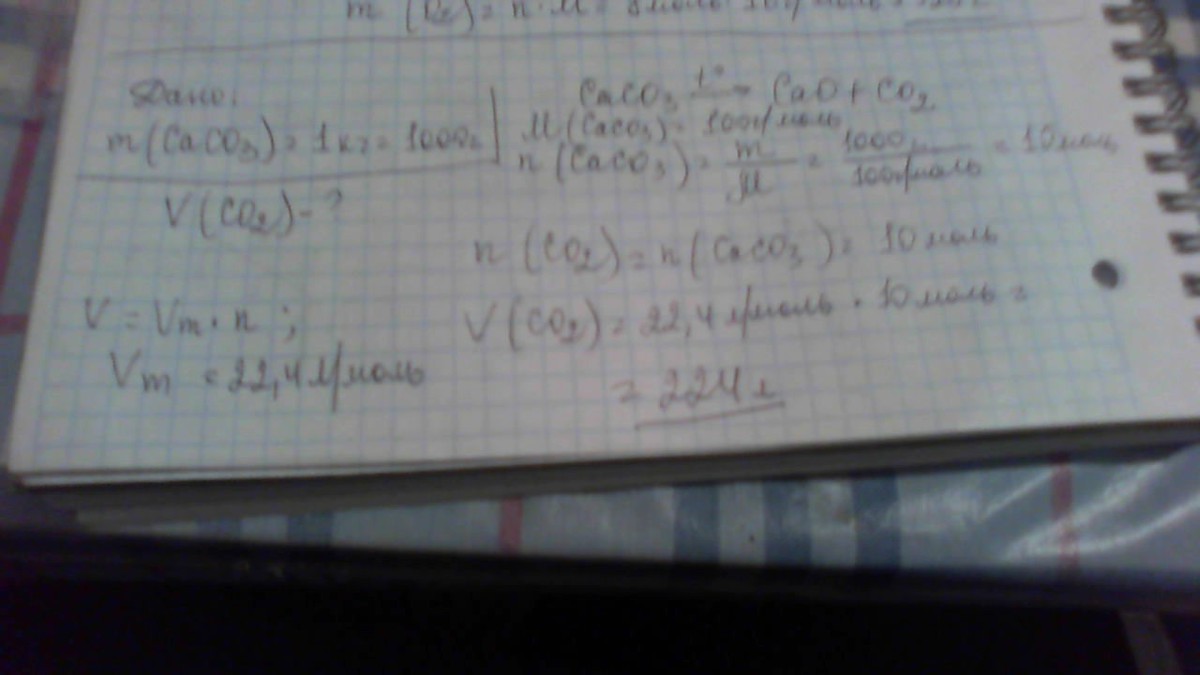 Дано:
m(CaCO3) = 1кг = 1000г
V(CO2) - ?
V = Vm · n ;
Vm = 22,4 л/моль
CaCO3 t° → CaO + CO2
M(CaCO3) = 100г/моль
n(CaCO3) = m/M = 1000г/100г/моль = 10 моль
n(CO2) = n(CaCO3) = 10 моль
V(CO2) = 22,4 л/моль · 10 моль =
= 224 л